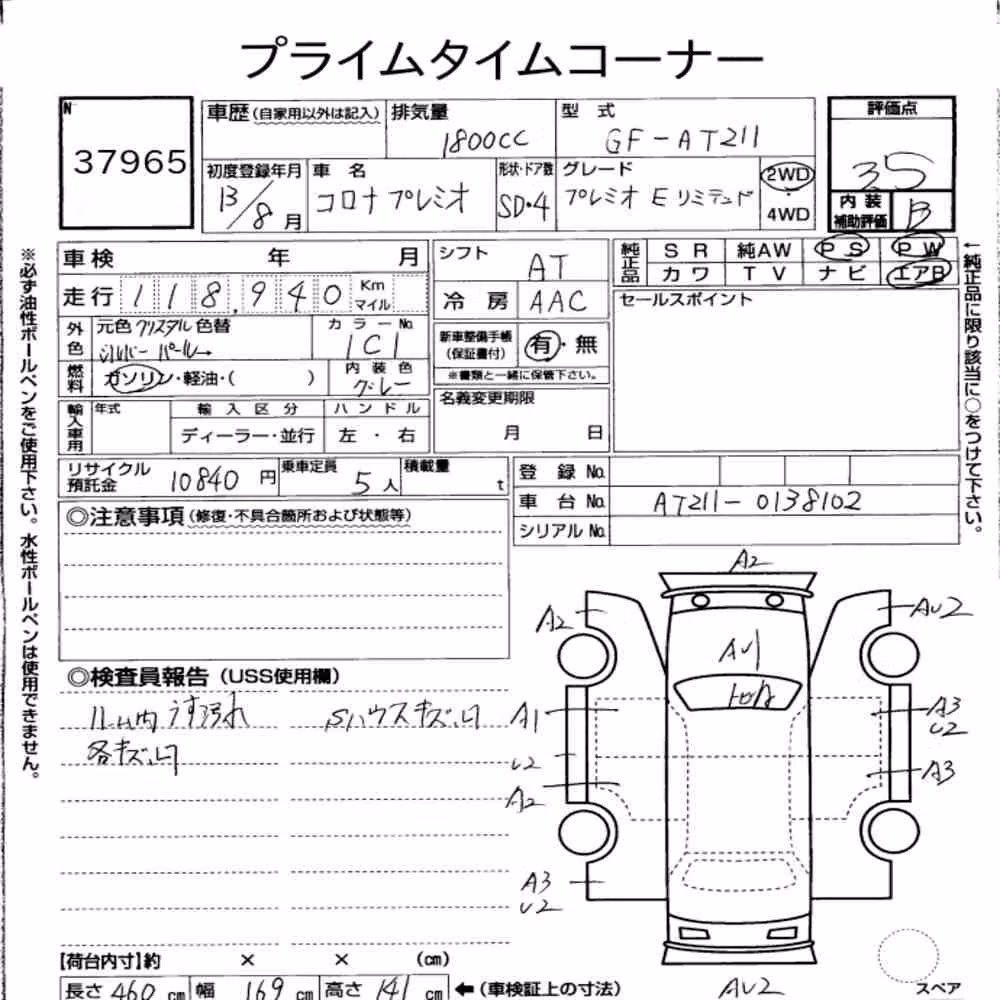 プライムタイムコーナー
N
37965
車歴 (自家用以外は記入)
排気量
1800CC
型 式
GF-AT211
評価点
35
初度登録年月
13/8月
車 名
コロナ プレミオ
形状・ドア数
SD・4
グレード
プレミオ E リミテッド
2WD
・
4WD
内 装
補助評価
B
※必ず油性ボールペンをご使用下さい。水性ボールペンは使用できません。
←純正品に限り該当に○をつけて下さい。
車検 年 月
走行 118,940 Km マイル
シフト
AT
冷 房 AAC
純正品
S R 純AW P S P W
カワ T V ナビ エアB
セールスポイント
外色
元色 クリスタル 色替
シルバー パール
カラーNo.
1C1
燃料
ガソリン・軽油・( )
内装色
グレー
新車整備手帳
(保証書付)
有・無
※書類と一緒に保管下さい。
名義変更期限
月 日
輸入車用
年式
輸入区分
ハンドル
ディーラー・並行
左 ・ 右
リサイクル
預託金
10840 円
乗車定員
5人
積載量
t
登 録 No.
車 台 No. AT211-0138102
シリアル No.
◎注意事項 (修復・不具合箇所および状態等)
◎検査員報告 (USS使用欄)
ルーム内 うす汚れ
Sハウスキズ凹
各キズ凹
A2
A2
AU2
AU1
トビA
A1
A3
U2
U2
A2
A3
A3
U2
AU2
スペア
【荷台内寸】約 × × (cm)
長さ 460 cm 幅 169 cm 高さ 141 cm ←(車検証上の寸法)